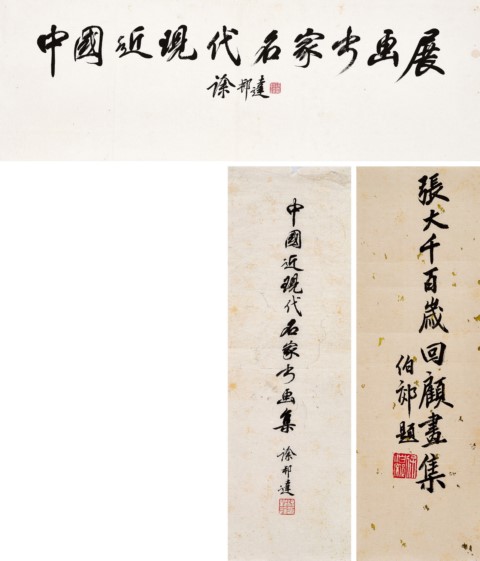 中國近現代名家书画展
徐邦達
中國近現代名家书画集
徐邦達
張大千百歲回顧畫集
伯郊題